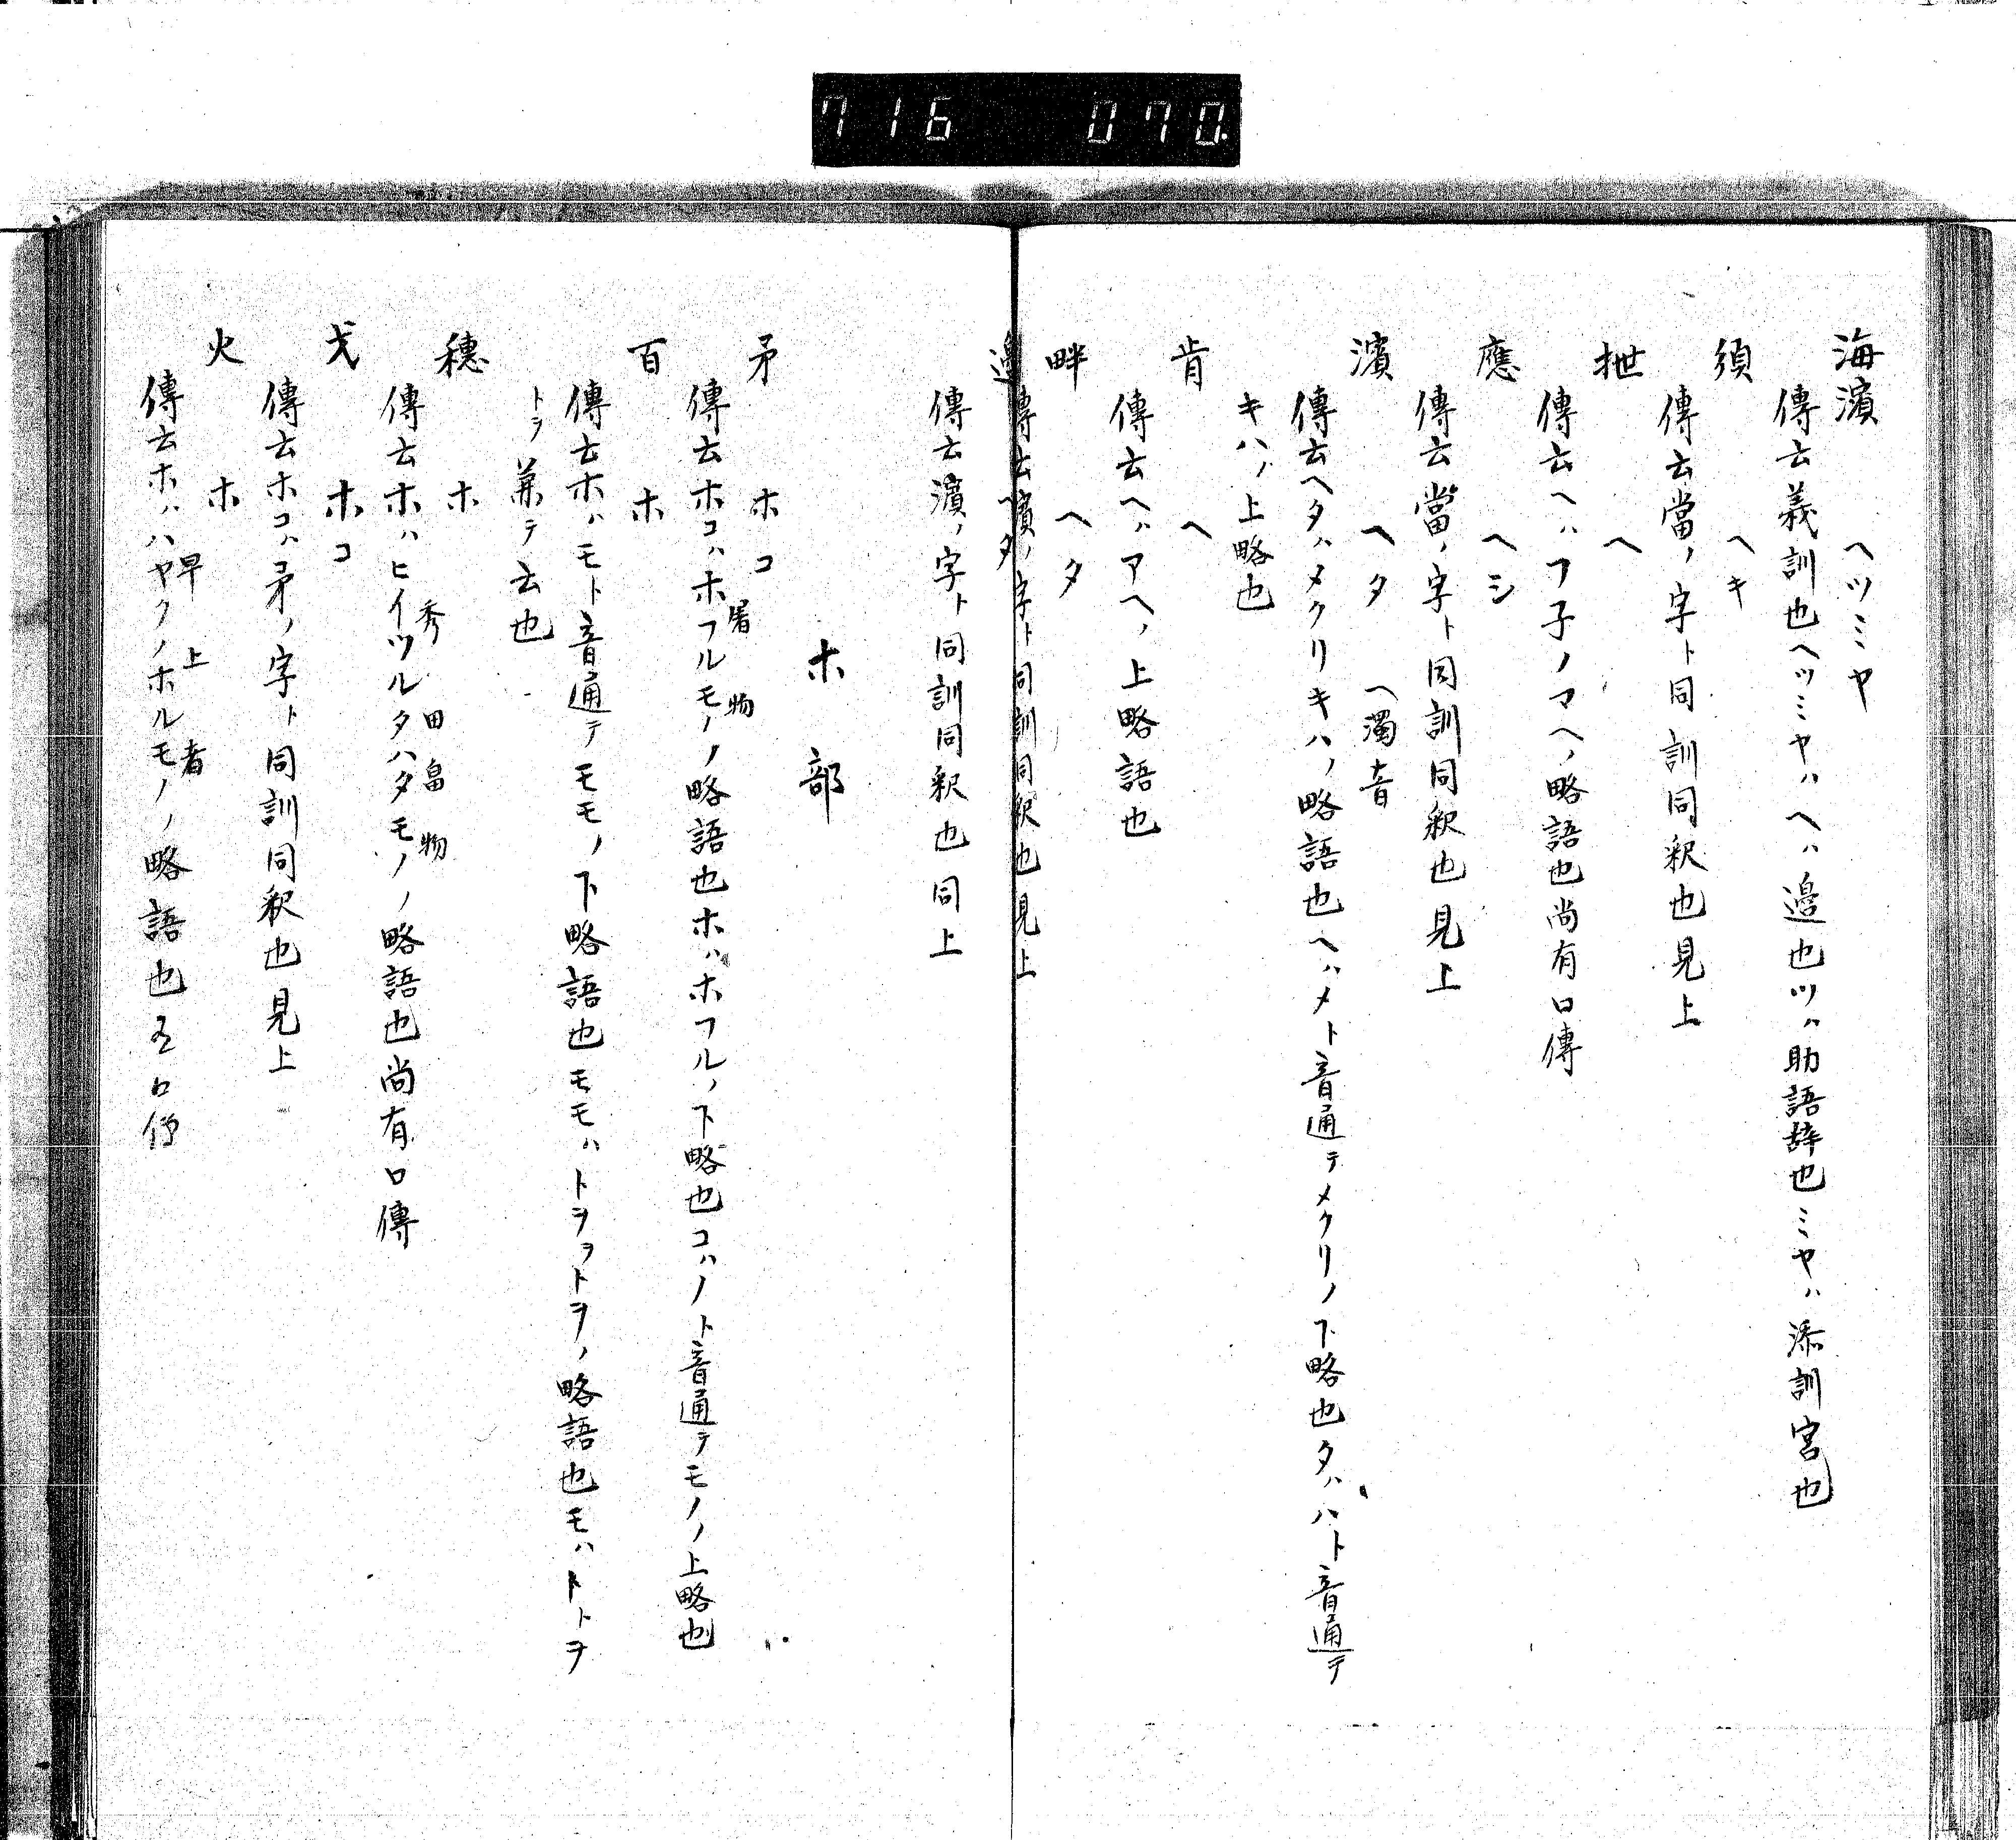 716 070
海濱 ヘツミヤ
傳云義訓也ヘツミヤハヘハ邉也ツハ助語辞也ミヤハ添訓宮也
須 ヘキ
傳云當ノ字ト同訓同釈也見上
抴 ヘ
傳云ヘハフ子ノマヘノ略語也尚有口傳
應 ヘシ
傳云當ノ字ト同訓同釈也見上
濱 ヘタ ヘ濁音
傳云ヘタハメクリキハノ略語也ヘハメト音通テメクリノ下略也タハハト音通テ
キハノ上略也
肯 ヘ
傳云ヘハアヘノ上略語也
畔 ヘタ
傳云濱ノ字ト同訓同釈也見上
邉 ヘタ
傳云濱ノ字ト同訓同釈也同上
ホ部
矛 ホコ
傳云ホコハホフルモノノ略語也ホハホフルノ下略也コハノト音通テモノノ上略也
屠 物
百 ホ
傳云ホハモト音通テモモノ下略語也モモハトヲヲトヲノ略語也モハトトヲ
トヲ兼テ云也
穗 ホ
傳云ホハヒイツルタハタモノノ略語也尚有口傳
秀 田畠 物
戈 ホコ
傳云ホコハ矛ノ字ト同訓同釈也見上
火 ホ
傳云ホハハヤクノホルモノノ略語也
早 上 者